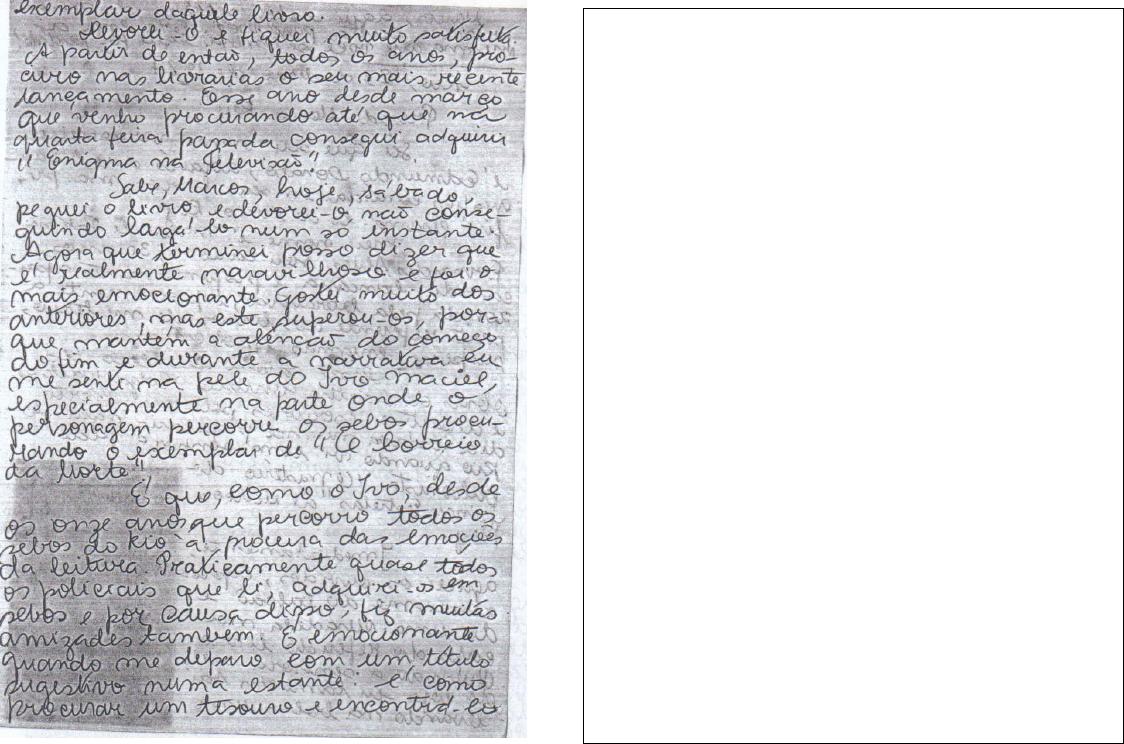 exemplar daquele livro.
Devorei-o e fiquei muito satisfeita.
A partir de então, todos os anos, pro-
curo nas livrarias o seu mais recente
lançamento. Esse ano desde março
que venho procurando até que na
quarta feira passada consegui adquirir
"Enigma na Televisão".
Sabe, Marcos, hoje, sábado,
peguei o livro e devorei-o, não conse-
guindo largá-lo num só instante.
Agora que terminei posso dizer que
é realmente maravilhoso e foi o
mais emocionante. Gostei muito dos
anteriores, mas este superou-os, por-
que mantém a atenção do começo
do fim e durante a narrativa eu
me senti na pele do Ivo Maciel,
especialmente na parte onde o
personagem percorre os sebos procu-
rando o exemplar de "O Correio
da Morte".
É que, como o Ivo, desde
os onze anos que percorro todos os
sebos do Rio à procura das emoções
da leitura. Praticamente quase todos
os policiais que li, adquiri-os em
sebos e por causa disso, fiz muitas
amizades também. É emocionante
quando me deparo com um título
sugestivo numa estante: é como
procurar um tesouro e encontrá-lo